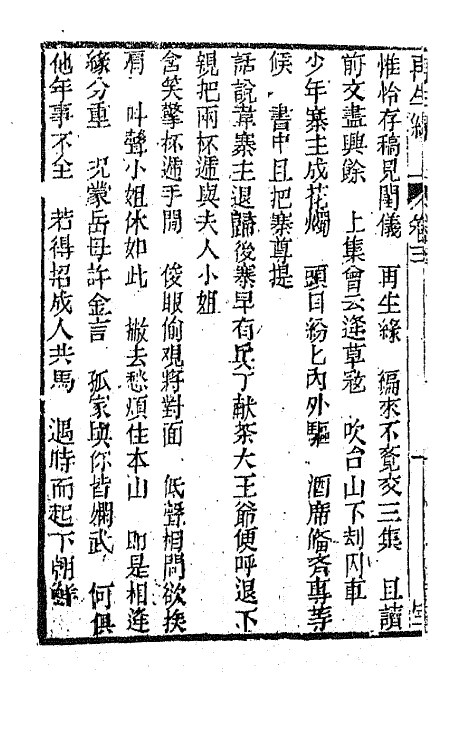 再生緣 卷三
惟怜存稿見閨儀 再生綠 編來不覺交三集 且讀
前文盡興餘 上集曾云逢草寇 吹台山下刦囚車
少年寨主成花燭 頭目紛匕內外驅 酒席俻齐專等
候 書中且把寨尊提
話說韋寨主退歸後寨早有兵丁献茶大王爺便呼退下
親把兩杯遞與夫人小姐
含笑擎杯遞手間 俊眼偷覌將對面 低聲相問欲挨
肩 呌聲小姐休如此 撇去愁煩住本山 即是相逢
緣分重 况蒙岳母許金言 孤家與你皆嫻武 何俱
他年事不全 若得招成人共馬 遇時而起下朝鮮